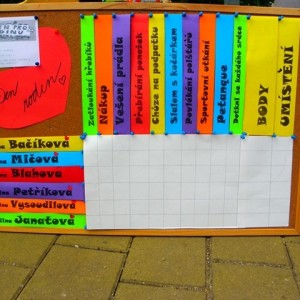 Den rodin!
Zatloukání hřebíků
Nákup
Věšení prádla
Přebírání ponožek
Chůze na podpatku
Slalom s kočárkem
Povlékání polštářů
Sportovní utkání
Petanque
BODY
UMÍSTĚNÍ
Bačíková
Mičová
Blahova
Petříková
Vysoudilová
Janatová